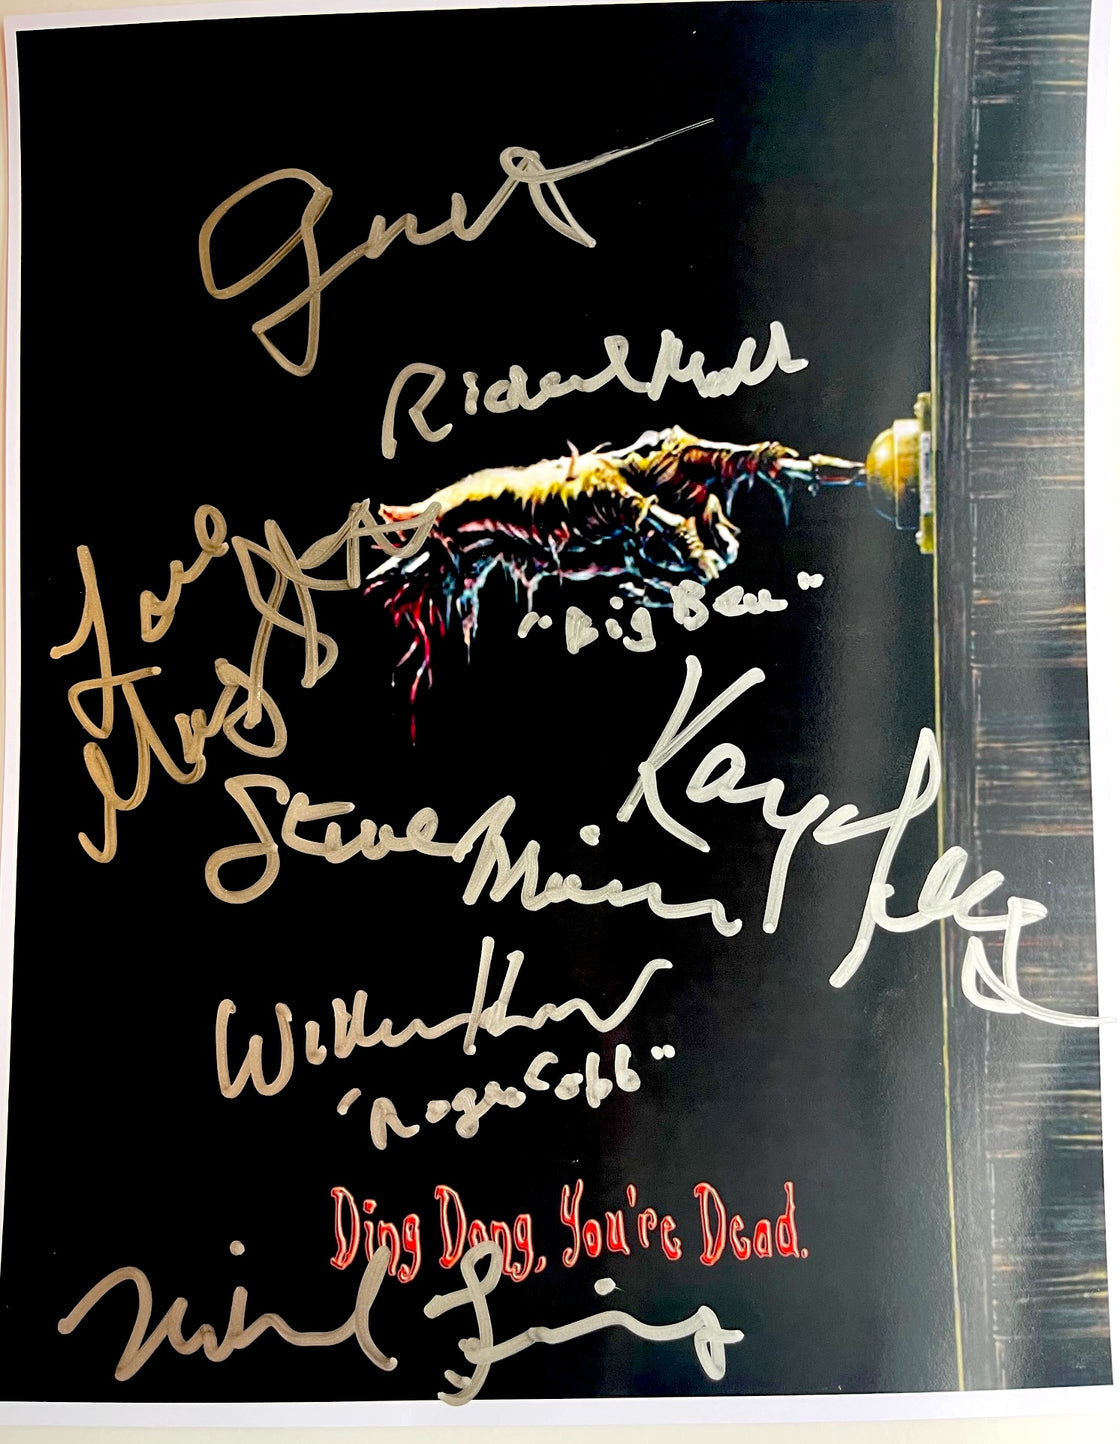 Richard Moll
Love
"Big Ben"
Mary
Kay Lenz
Steve Miner
William Katt
"Roger Cobb"
Ding Dong, You're Dead.
Michael Ensign